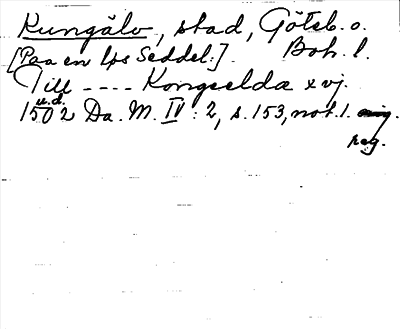 Kungälv, stad, Göteb. o.
Boh. l.
[Paa en løs Seddel:]
Till ---- Kongselda xvj.
u.d.
1502 Da. M. IV: 2, s. 153, not. 1.
reg.